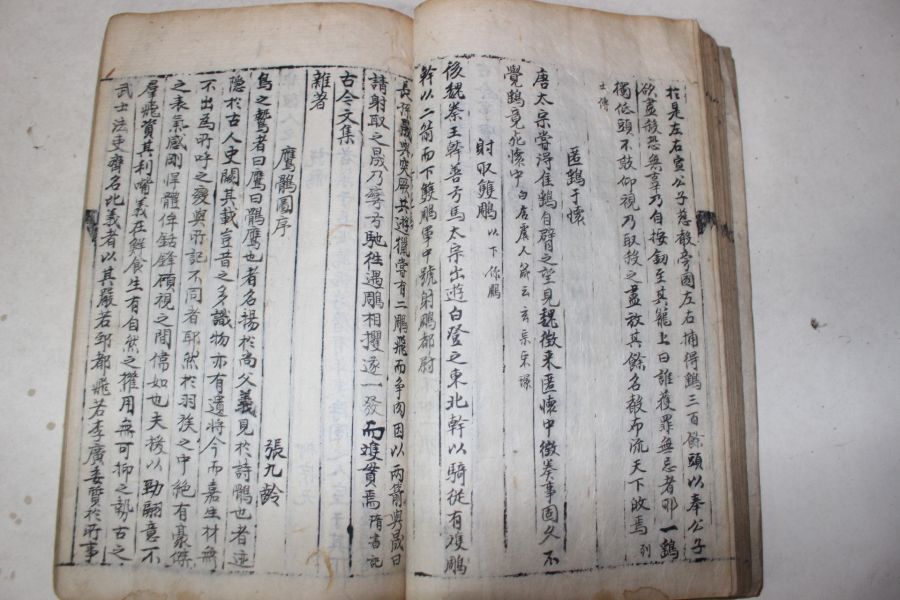 於是左右宣公子慈聲旁國左右捕得鷂三百餘頭以奉公子
欲盡殺恐無辜乃自按劒至其籠上曰誰獲罪無忌者耶一鷂
獨低頭不敢仰視乃取殺之盡放其餘名聲布流天下皈焉 列
士傳
匿鷂于懷
唐太宗嘗得佳鷂自臂之望見魏徵来匿懷中徵奏事固久不
覺鷂竟死懷中 白居
射取雙鵰 以下係鵰
後魏秦王幹善弓馬太宗出遊白登之東北幹以騎從有雙鵰
幹以二箭而下雙鵰軍中號射鵰都尉
長孫晟與突厥共遊獵嘗有二鵰飛而争肉因以兩箭與晟曰
請射取之晟乃彎弓馳往遇鵰相攫遂一發而雙貫焉 隋書
古今文集
雜著
鷹鶻圖序
張九齡
鳥之鷙者曰鷹曰鶻鷹也者名揚於尚父義見於詩鶻也者迹
隱於古人史闕其載豈昔之多識物亦有遺将今而嘉生材無
不出為所呼之變與所記不同者耶然於羽族之中絶有豪傑
之表氣感剛悍體侔鈷鋒顧視之間儒如也夫拔以勁翮意不
羣飛資其利嘴義在鮮食生有自然之權用無可抑之勢古之
武士法吏齊名比義者以其嚴若郅都飛若李廣委質於所事